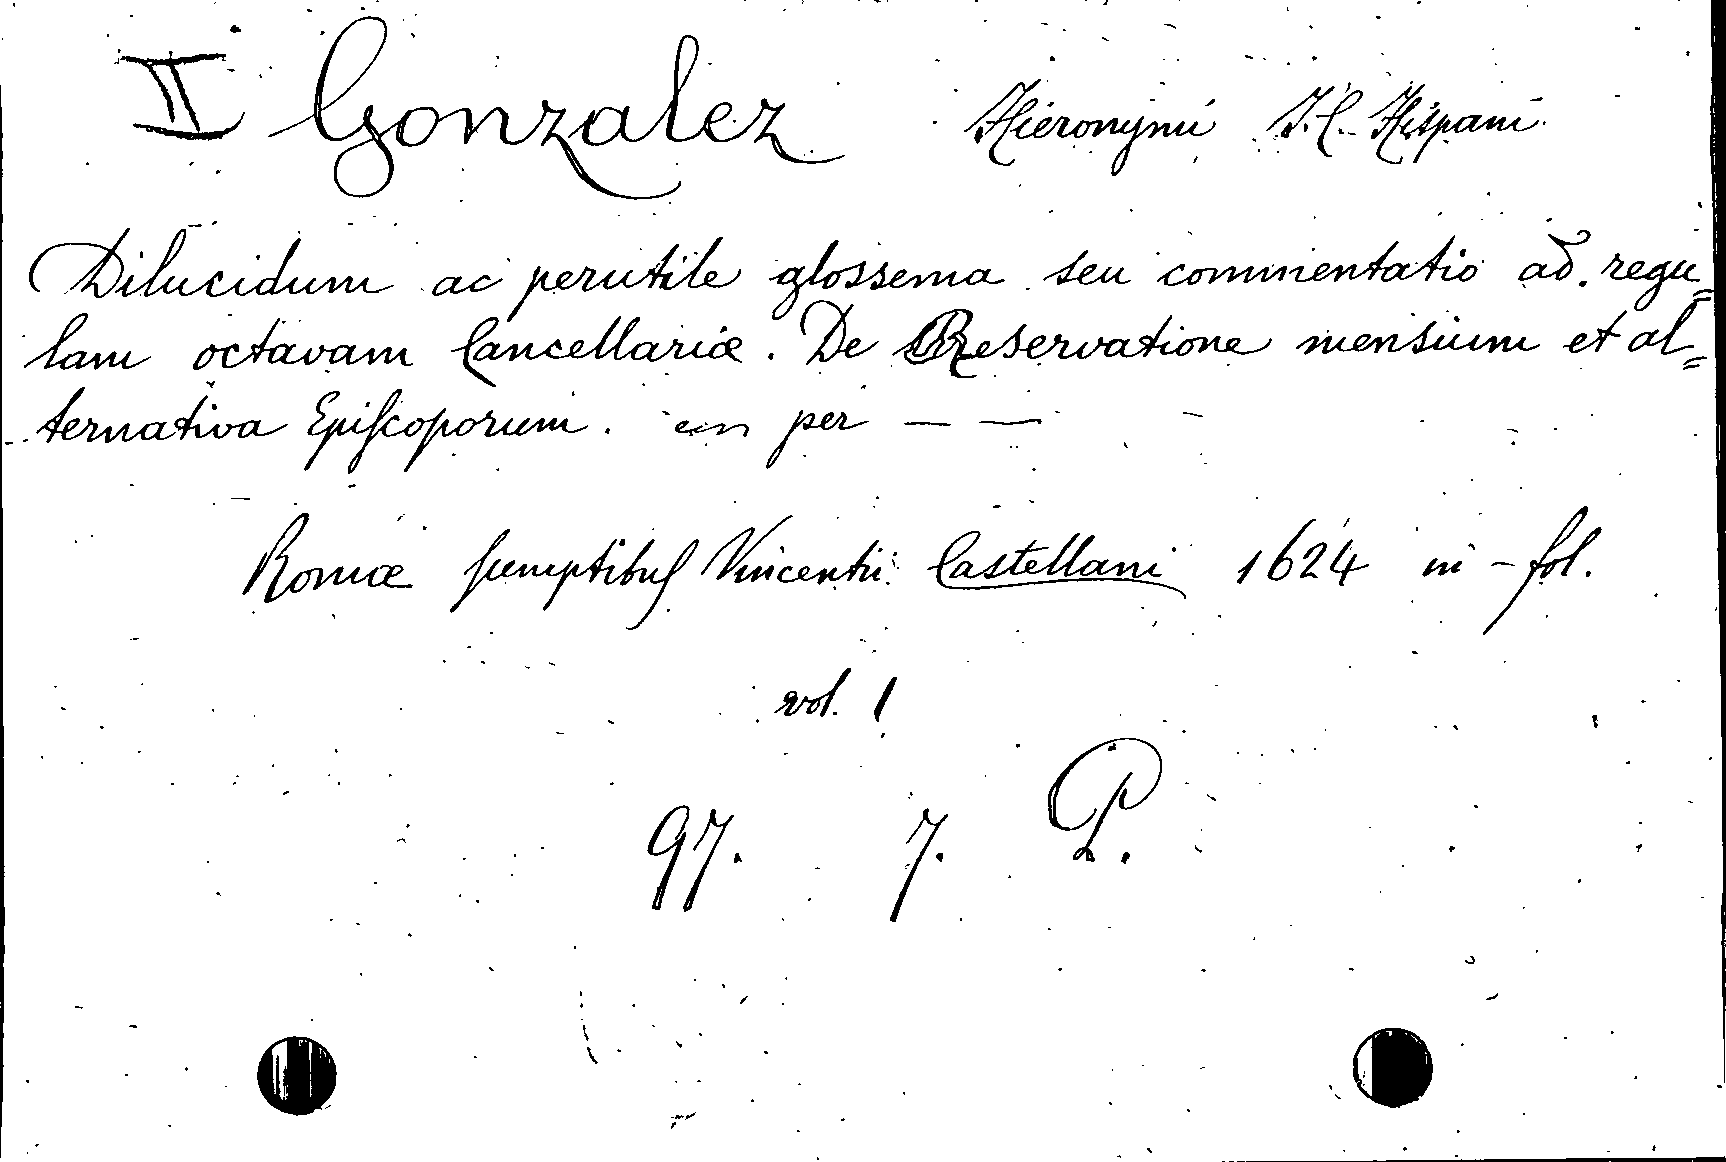 II Gonzalez Hieronymi J.C. Hispani.
Dilucidum ac perutile glossema seu commentatio ad regu=
lam octavam Cancellariæ. De Reservatione mensium et al=
ternativa Epiſcoporum. per — —
Romæ ſumptibuſ Vincentii Castellani 1624 in-fol.
vol. 1
97. 7. P.